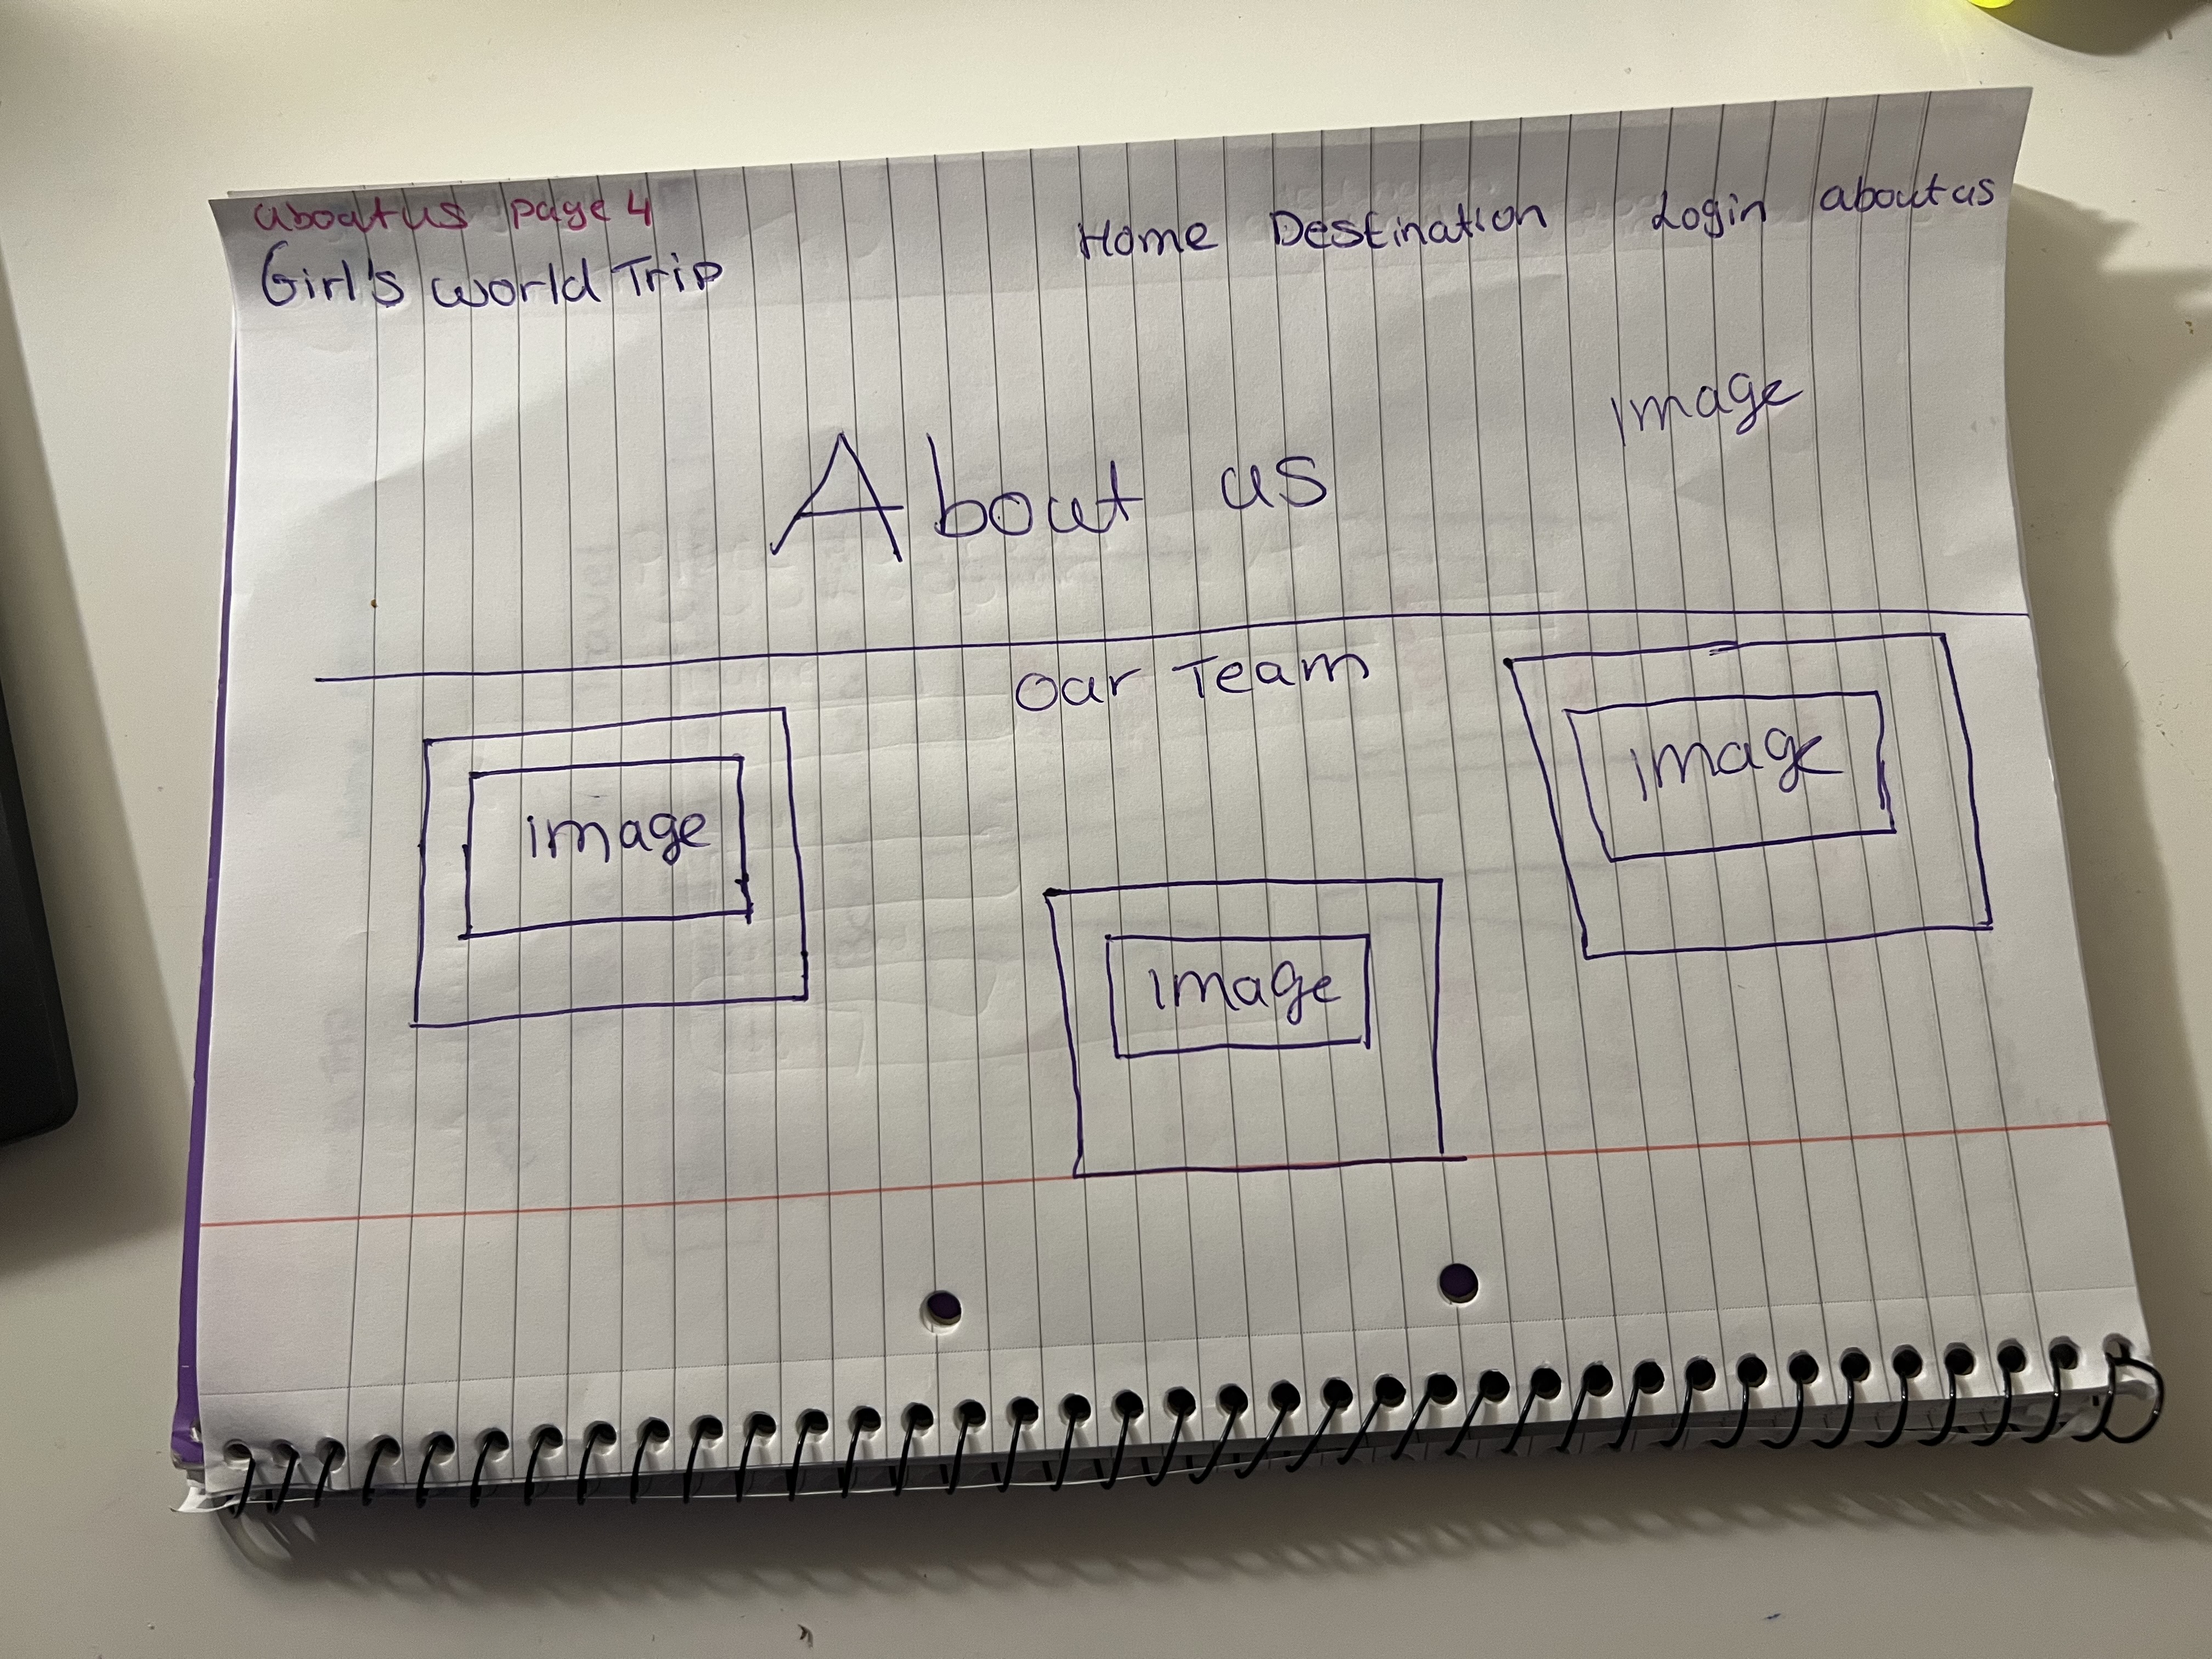 about us page 4
Girl's World Trip
Home Destination Login about us
About us
Image
Our Team
Image
Image
Image